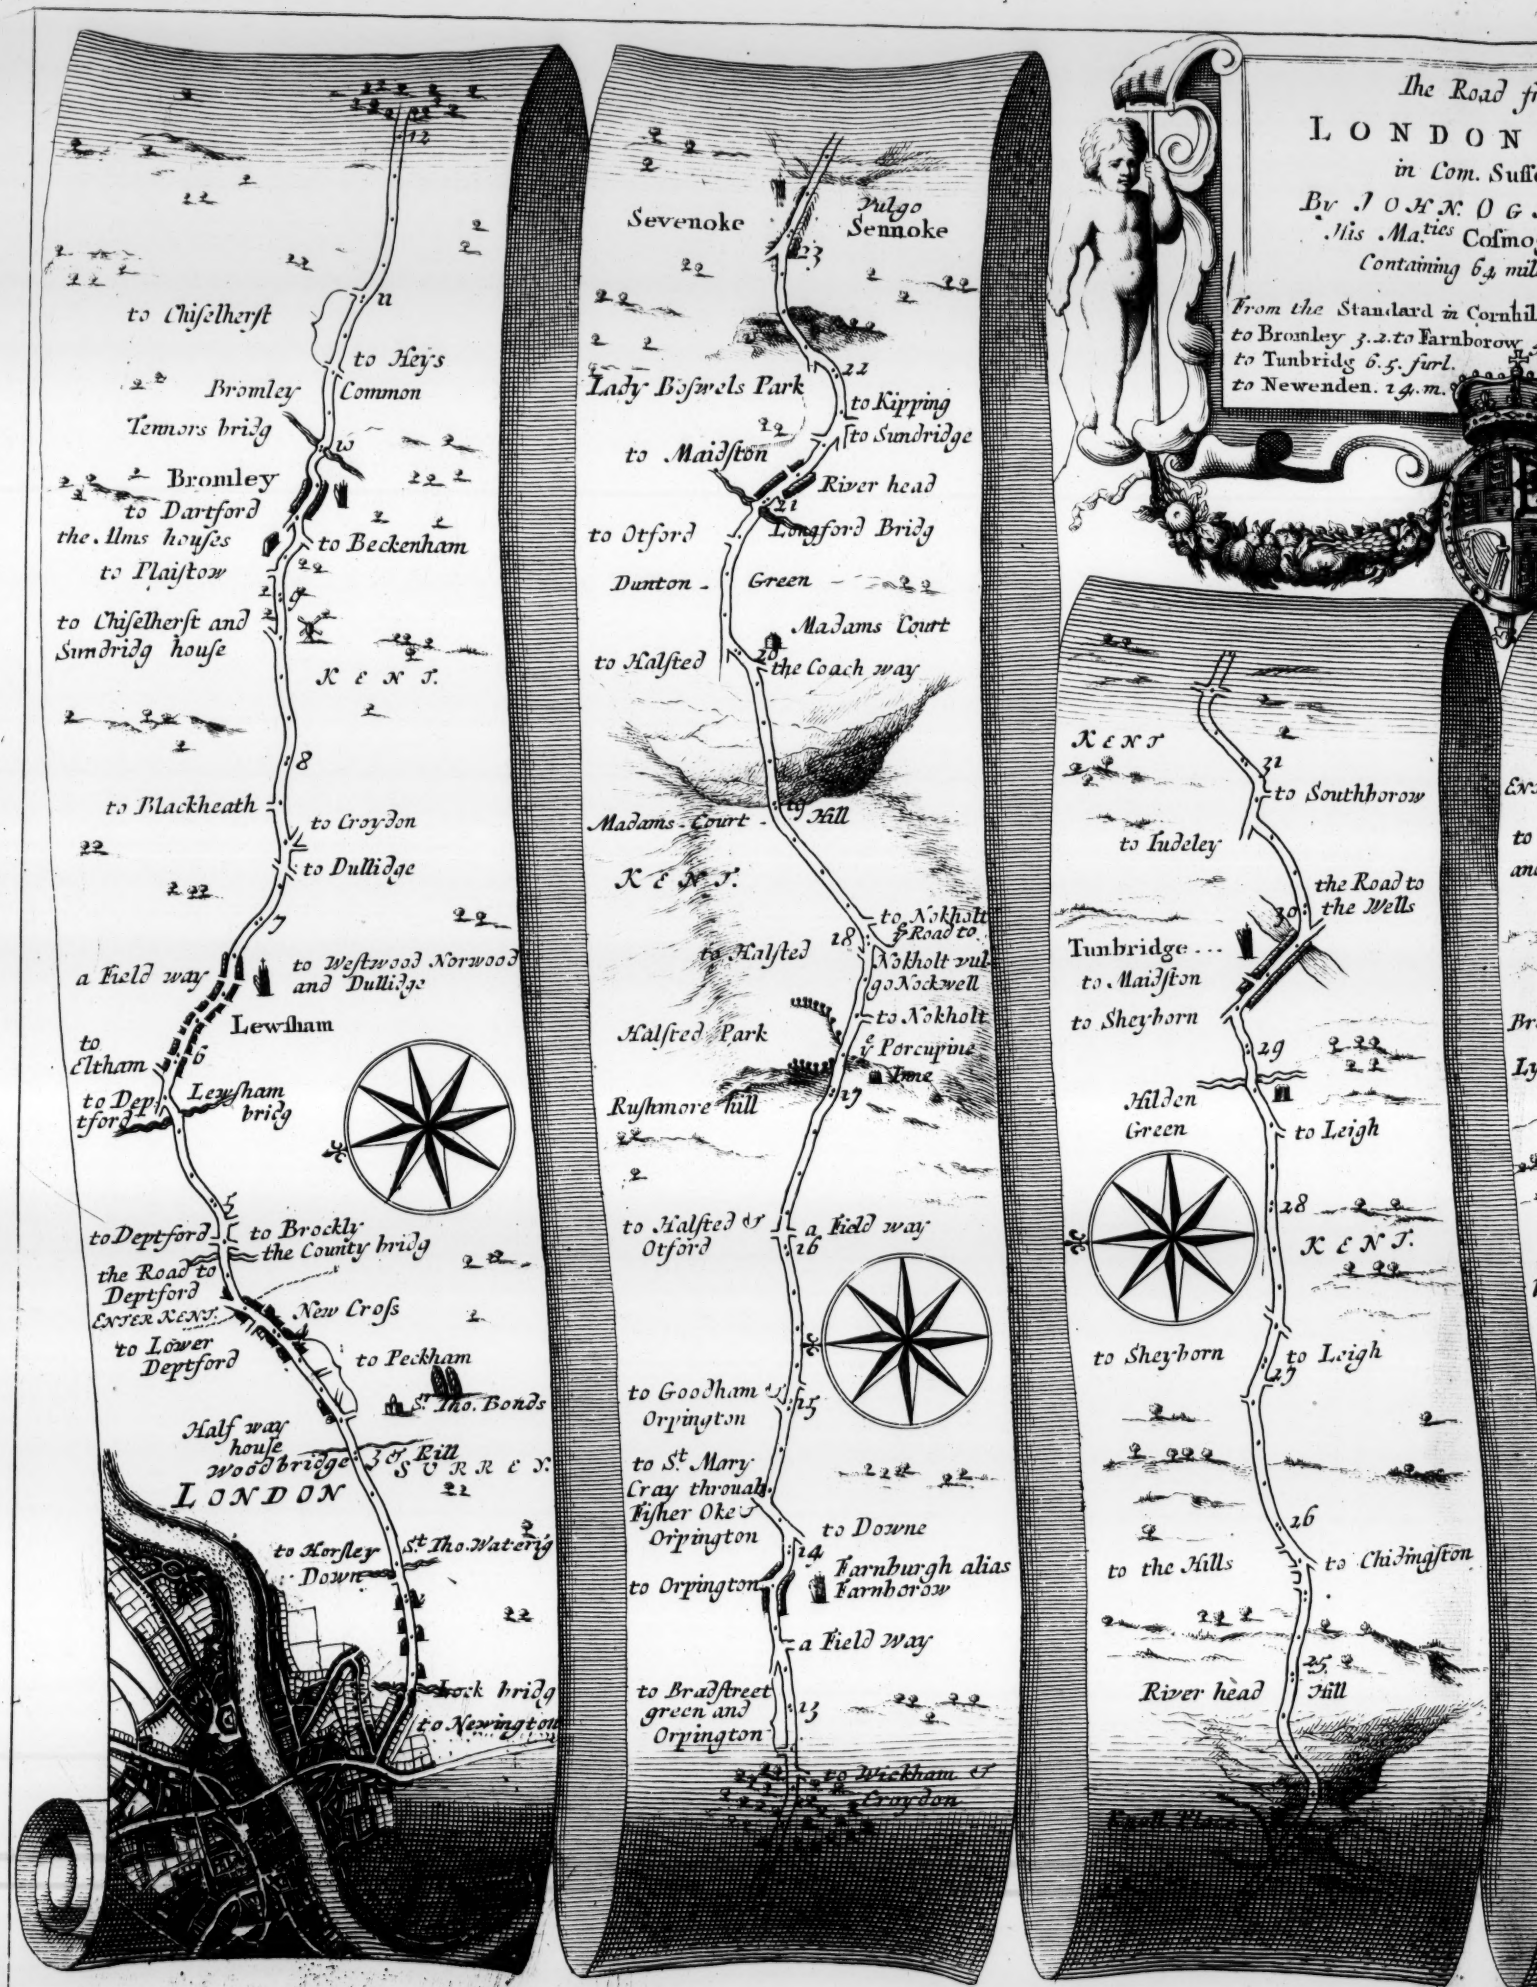 The Road
LONDON
in Com.
By JOHN
His Ma.ties
Containing 64
From the Standard in
to Bromley 3.2. to Farnborow
to Tunbridg 6.5. furl.
to Newenden. 14. m.
12
to Chiselherst
11
to Heys
Bromley Common
Tennors bridg
10
Bromley
to Dartford
the Alms houses
to Beckenham
to Plaistow
9
to Chiselherst and
Sundridg house
KENT.
8
to Blackheath
to Croydon
to Dullidge
7
a Field way
to Westwood Norwood
and Dullidge
Lewsham
to
Eltham
6
to Dep-
tford
Lewsham
bridg
5
to Deptford
to Brockly
the County bridg
the Road to
Deptford
ENTER KENT.
New Cross
to Lower
Deptford
to Peckham
St. Tho. Bonds
Half way
house
Woodbridge 3 & Rill
SURREY.
LONDON
to Horsley
Down
St. Tho. Waterig
Lock bridg
to Newington
Sevenoke
vulgo
Sennoke
23
22
Lady Boswels Park
to Kipping
to Sundridge
to Maidston
River head
21
to Otford
Longford Bridg
Dunton - Green
Madams Court
20
to Halsted
the Coach way
19
Madams - Court - Hill
KENT.
to Nokholt
ye Road to
18
to Halsted
Nokholt vul-
go Nockwell
to Nokholt
Halsted Park
ye Porcupine
Inne
17
Rushmore hill
to Halsted &
Otford
a Field way
16
to Goodham &
Orpington
15
to St. Mary
Cray through
Fisher Oke &
Orpington
to Downe
14
Farnburgh alias
Farnborow
to Orpington
a Field way
to Bradstreet
green and
Orpington
13
to Wickham &
Croydon
KENT
31
to Southborow
to Tudeley
the Road to
the Wells
30
Tunbridge ...
to Maidston
to Sheyborn
29
Hilden
Green
to Leigh
28
KENT.
to Sheyborn
to Leigh
27
26
to the Hills
to Chidingston
25
River head Hill
Knoll Place
to
Ly